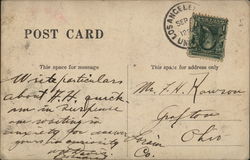 LOS ANGELES
SEP
POST CARD
This space for message
This space for address only
Write particulars
about H. H. quick
am in suspense
am waiting in
anxiety for answer
your
Mr. F. H.
Grafton
Lorain Ohio
Co.